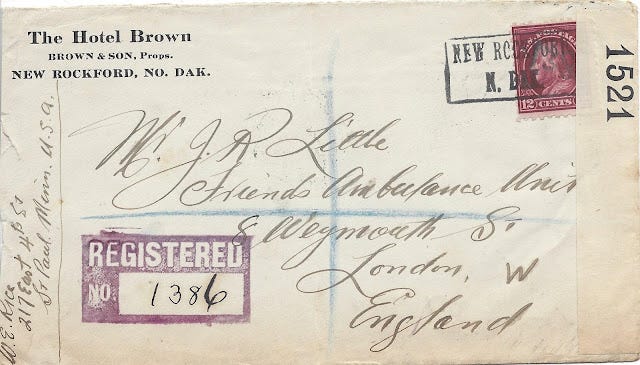 The Hotel Brown
BROWN & SON, Props.
NEW ROCKFORD, NO. DAK.
NEW ROCKFORD
N. DAK
U.S. POSTAGE
12 CENTS 12
1521
Mr J. R Little
Friends Ambulance Unit
8 Weymouth St
London, W
England
REGISTERED
NO. 1386
W. E. Rice
217 East 4th St
St Paul Minn. U.S.A.